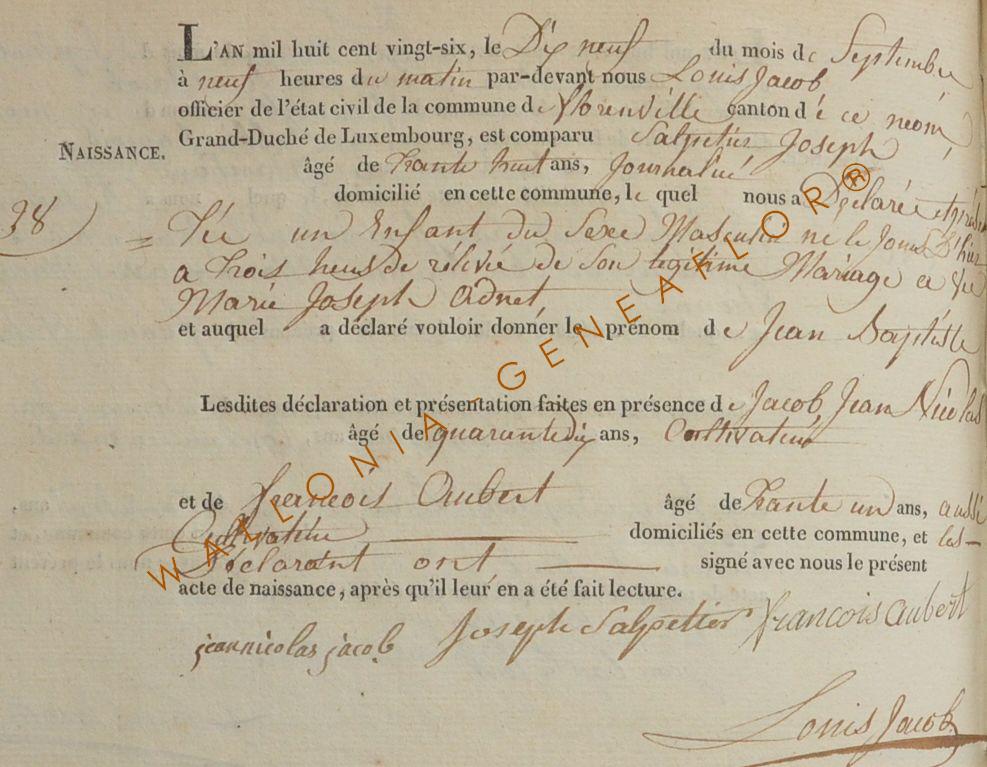 L'AN mil huit cent vingt-six, le Dix neuf du mois de Septembre
à neuf heures du matin par-devant nous Louis Jacob
officier de l'état civil de la commune de florenville canton de ce nom
Grand-Duché de Luxembourg, est comparu Salpetier Joseph
NAISSANCE.
âgé de trante huit ans, Journalié
domicilié en cette commune, le quel nous a Déclarée
38
un Enfant du Sexe Masculin ne le Jour D'hier
a trois heurs de rélivié de Son légitime Mariage
Marie Joseph Adnet
et auquel a déclaré vouloir donner le prénom de Jean Baptiste
Lesdites déclaration et présentation faites en présence de Jacob Jean Nicolas
âgé de quarante dix ans, Cultivateur
et de francois Aubert âgé de trante un ans, aussi
Cultivateur domiciliés en cette commune, et les
Déclarant ont signé avec nous le présent
acte de naissance, après qu'il leur en a été fait lecture.
jean nicolas jacob Joseph Salpetier francois aubert
Louis Jacob
WALLONIA-GENEAFLOR®